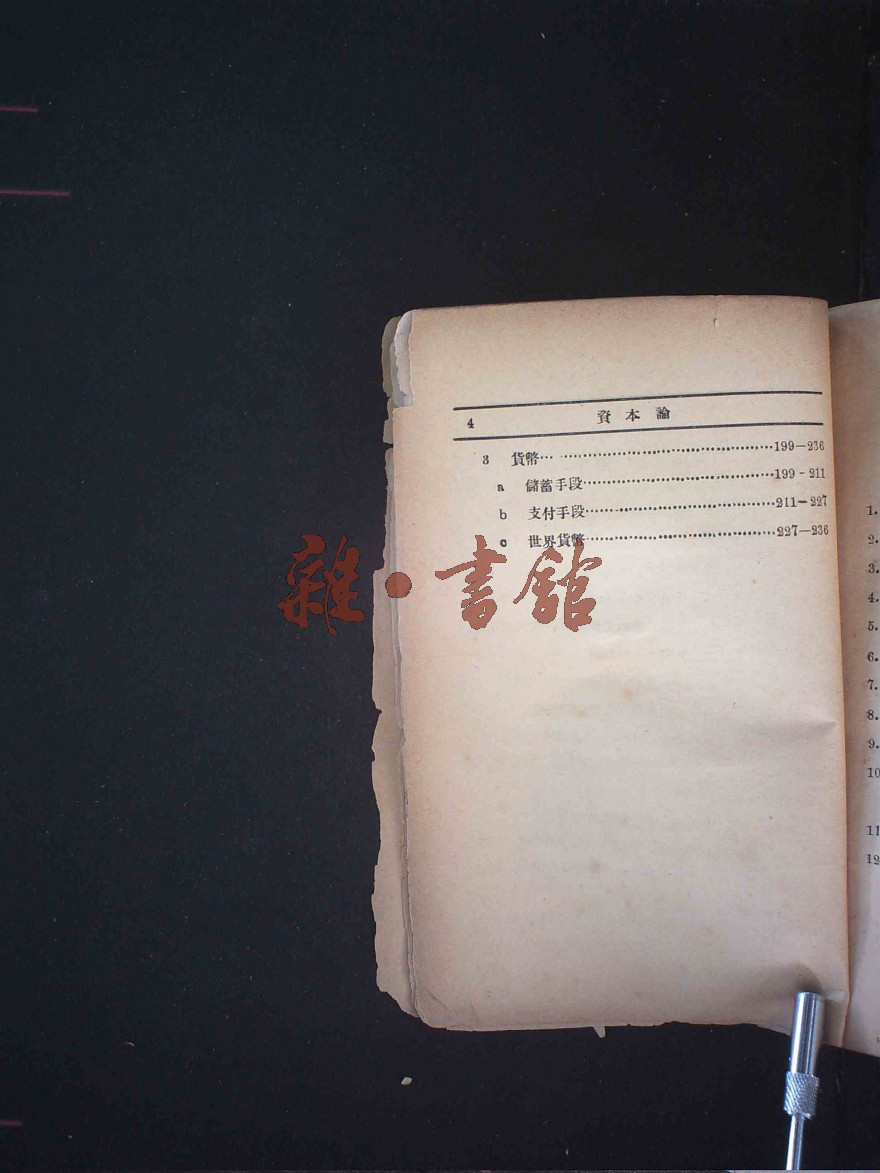 4 資本論
3 貨幣… ……………………………199—236
a 儲蓄手段……………………………199-211
b 支付手段……………………………211—227
c 世界貨幣……………………………227—236
雜·書館
1.
2.
3.
4.
5.
6.
7.
8.
9.
10
11
12